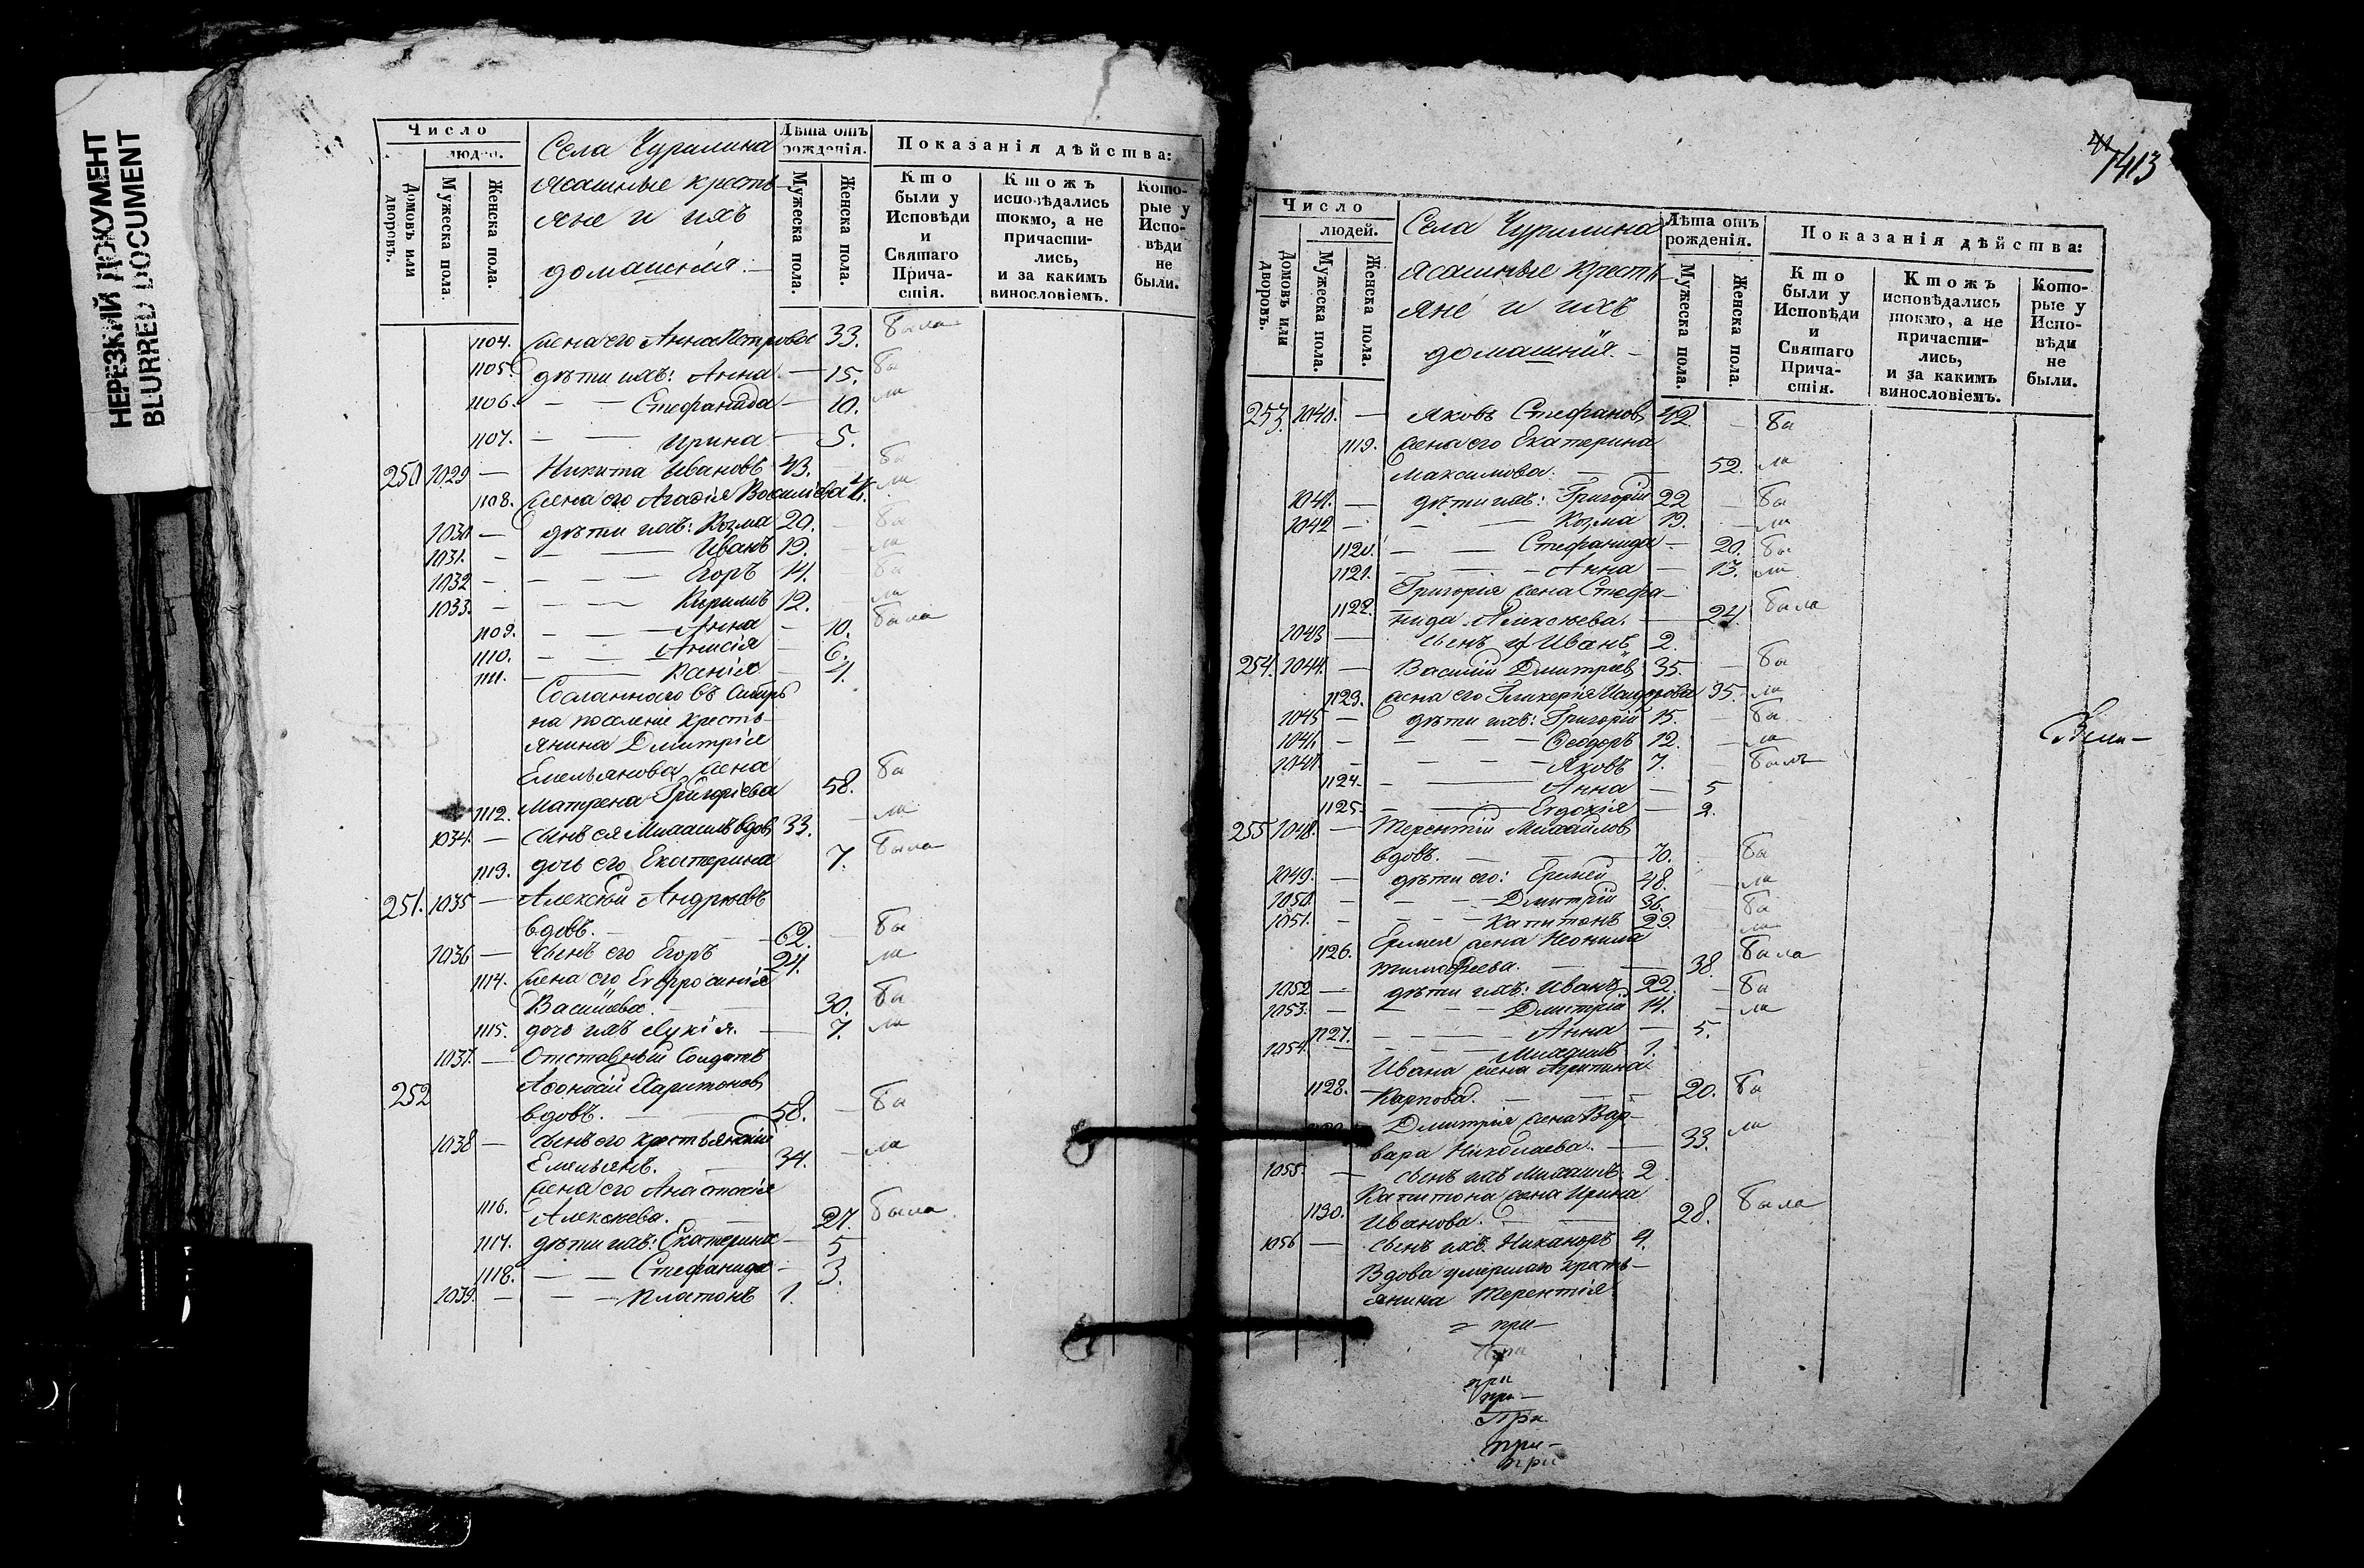 НЕРЕЗКИЙ ДОКУМЕНТ
BLURRED DOCUMENT
Число
людей.
Домовъ или дворовъ.
Мужеска пола.
Женска пола.
Села Чурилина
Ясашные кресть-
яне и ихъ
домашнія.
Лѣта отъ рожденія.
Мужеска пола.
Женска пола.
Показанія дѣйства:
Кто были у Исповѣди и Святаго Причастія.
Ктожъ исповѣдались токмо, а не причастились, и за какимъ винословіемъ.
Которые у Исповѣди не были.
1104. жена его Анна Петрова 33. была
1105. дѣти ихъ: Анна — 15. бы
1106. — — Стефанида — 10. ли
1107. — — Ирина — 5.
250 1029 — Никита Ивановъ 43. бы
1108. жена его Агафія Василіева ли
1030 — дѣти ихъ: Козма 20. — бы
1031. — — — Иванъ 19. — ли
1032 — — — Егоръ 14. — бы
1033. — — — Кирилъ 12. — ли
1109. — — Анна — 10. была
1110. — — Анисія — 6.
1111. — — Ксенія — 4.
Сосланного въ Сибирь
на поселеніе кресть-
янина Дмитрія
Емельянова жена
1112. Матрена Григоріева 58. бы
1034. — сынъ ея Михаилъ вдовъ 33. — ли
1113. дочь его Екатерина 7. была
251. 1035 — Алексѣй Андрѣевъ
вдовъ. — — 62. — бы
1036 — сынъ его Егоръ 24. ли
1114. жена его Евфросинія
Василіева. — 30. бы
1115. дочь ихъ Лукія. — 7. ли
1037. — Отставный Солдатъ
252 Афонасій Харитоновъ
вдовъ. — 58. — бы
1038 — сынъ его крестьянскій
Емельянъ. — 34. — ли
жена его Анастасія
1116. Алексѣева. — 27. была
1117. дѣти ихъ: Екатерина — 5
1118. — — Стефанида — 3.
1039. — — — Платонъ 1.
1413
Число
людей.
Домовъ или дворовъ.
Мужеска пола.
Женска пола.
Села Чурилина
Ясашные кресть-
яне и ихъ
домашнія. —
Лѣта отъ рожденія.
Мужеска пола.
Женска пола.
Показанія дѣйства:
Кто были у Исповѣди и Святаго Причастія.
Ктожъ исповѣдались токмо, а не причастились, и за какимъ винословіемъ.
Которые у Исповѣди не были.
253. 1040. — Яковъ Стефановъ 42. — бы
1119. жена его Екатерина
Максимова. — — 52. ли
1041. — дѣти ихъ: Григорій 22 — бы
1042 — — — Козма 19. — ли
1120. — — Стефанида — 20. бы
1121. — — — Анна — 13. ли
Григорія жена Стефа-
1122. нида Алексѣева. — 24. была
1043 — сынъ их Иванъ 2.
254. 1044. — Василій Дмитріевъ 35. — бы
1123. жена его Гликерія Исидорова 35. ли
1045 — дѣти ихъ: Григорій 15. — бы
1046. — — — Ѳеодоръ 12. — ли
1047. — — — Яковъ 7. — былъ
1124. — — Анна — 5
1125. — — Евдокія — 2.
255 1048. — Терентій Михайловъ
вдовъ. — 70. — бы
1049. — дѣти его: Еремей 48. — ли
1050. — — — Дмитрій 36. — бы
1051. — — — Капитонъ 29. — ли
Еремея жена Неонила
1126. Тимофеева. — 38. была
1052 — дѣти ихъ: Иванъ 22. — бы
1053. — — — Дмитрій 14. — ли
1127. — — — Анна — 5.
1054. — — — Михаилъ 1.
Ивана жена Агрипина
1128. Карпова. — — 20. бы
Дмитрія жена Вар-
вара Николаева. — 33. ли
1055. — сынъ ихъ Михаилъ. 2
Капитона жена Ирина
1130. Иванова. — 28. была
1056 — сынъ ихъ Никаноръ 4.
Вдова умершаго кресть-
янина Терентія
при—
при
при
при—
При
при—
при